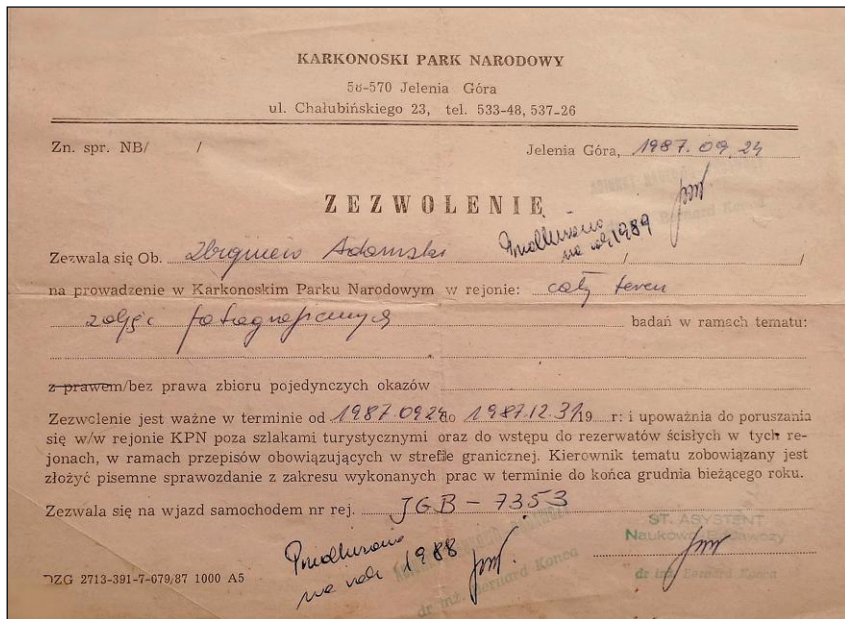 KARKONOSKI PARK NARODOWY
58-570 Jelenia Góra
ul. Chałubińskiego 23, tel. 533-48, 537-26
Zn. spr. NB/ /
Jelenia Góra, 1987.09.24
ZEZWOLENIE
Przedłużono
na rok 1989
Zezwala się Ob. Zbigniew Adamski / /
na prowadzenie w Karkonoskim Parku Narodowym w rejonie: cały teren
zdjęć fotograficznych badań w ramach tematu:
z prawem/bez prawa zbioru pojedynczych okazów
Zezwolenie jest ważne w terminie od 1987.09.24 do 1987.12.31 19 r: i upoważnia do poruszania
się w/w rejonie KPN poza szlakami turystycznymi oraz do wstępu do rezerwatów ścisłych w tych re-
jonach, w ramach przepisów obowiązujących w strefie granicznej. Kierownik tematu zobowiązany jest
złożyć pisemne sprawozdanie z zakresu wykonanych prac w terminie do końca grudnia bieżącego roku.
Zezwala się na wjazd samochodem nr rej. JGB - 7353
ST. ASYSTENT
Naukowo-Badawczy
dr inż. Bernard Konca
Przedłużono
na rok 1988
dr inż. Bernard Konca
DZG 2713-391-7-079/87 1000 A5